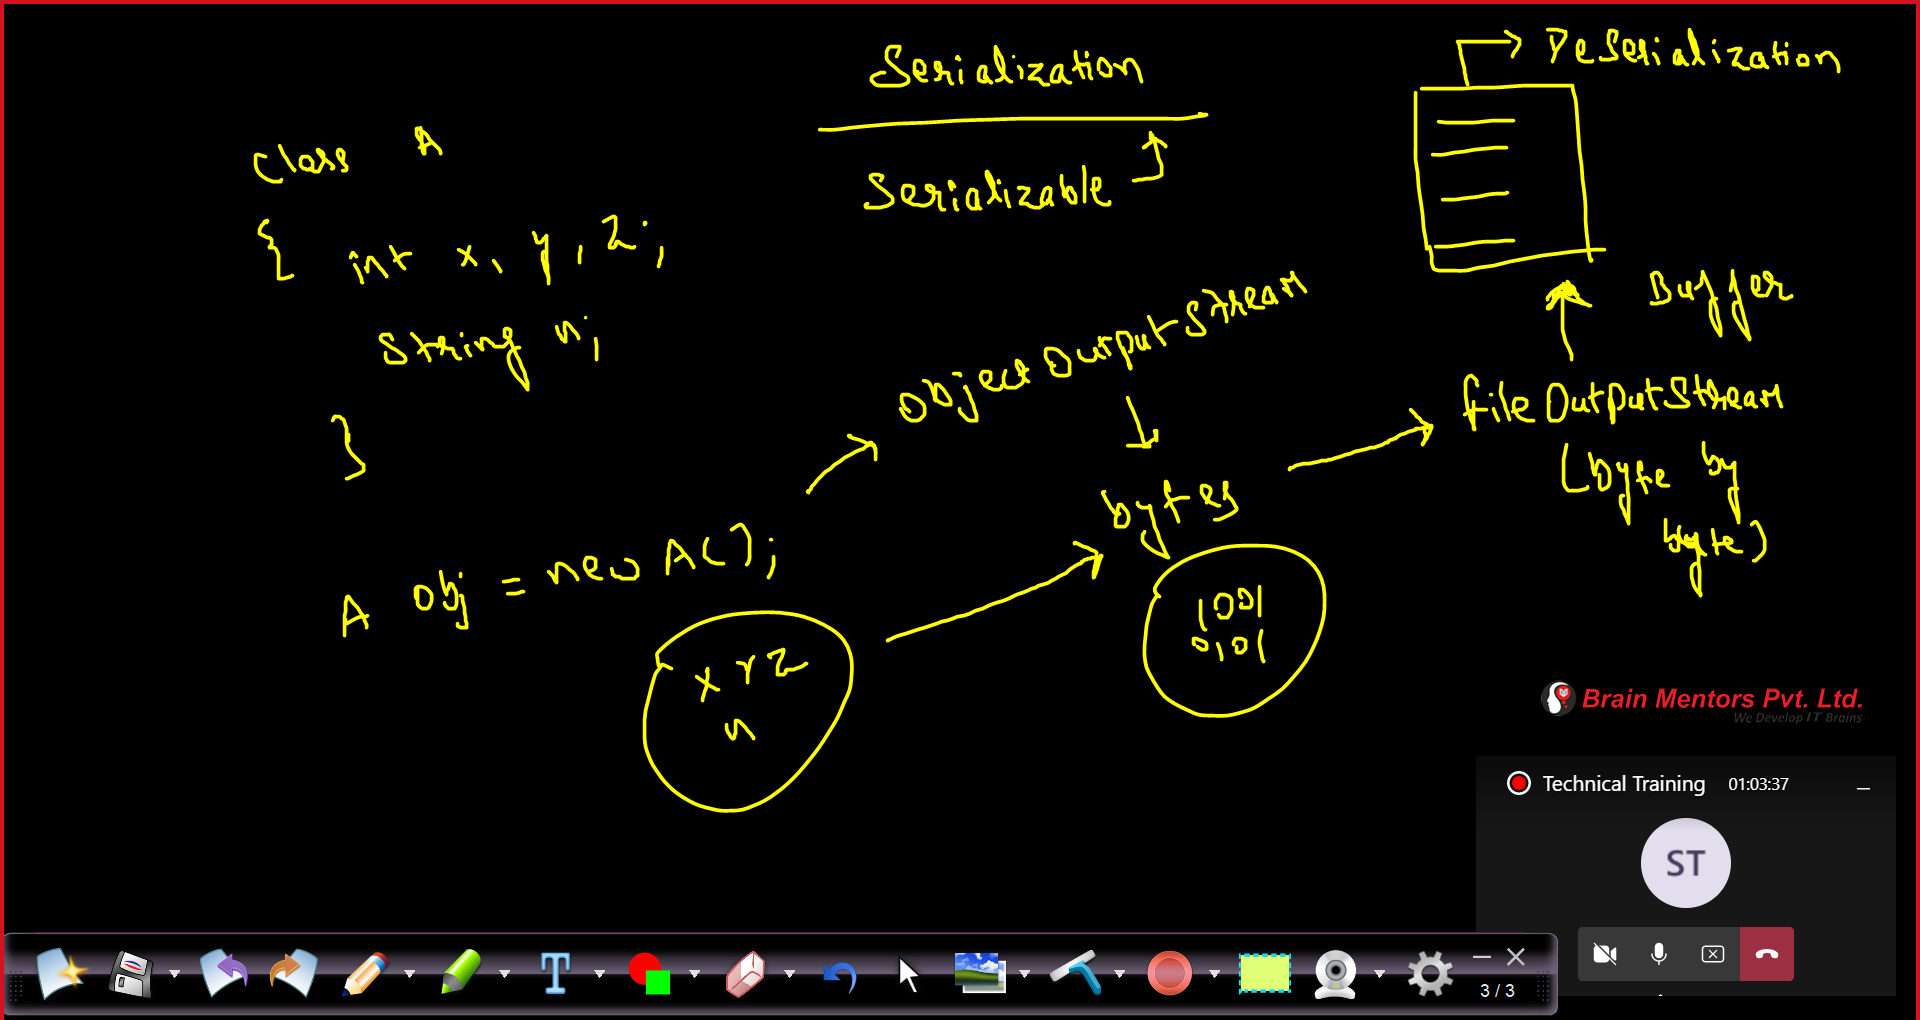 Serialization
Serializable
DeSerialization
class A
{ int x, y, z;
String n;
}
A obj = new A();
x y z
n
Object Output Stream
bytes
1001
0101
Buffer
file OutputStream
(byte by
byte)
Brain Mentors Pvt. Ltd.
We Develop IT Brains
Technical Training 01:03:37
ST
T
3 / 3